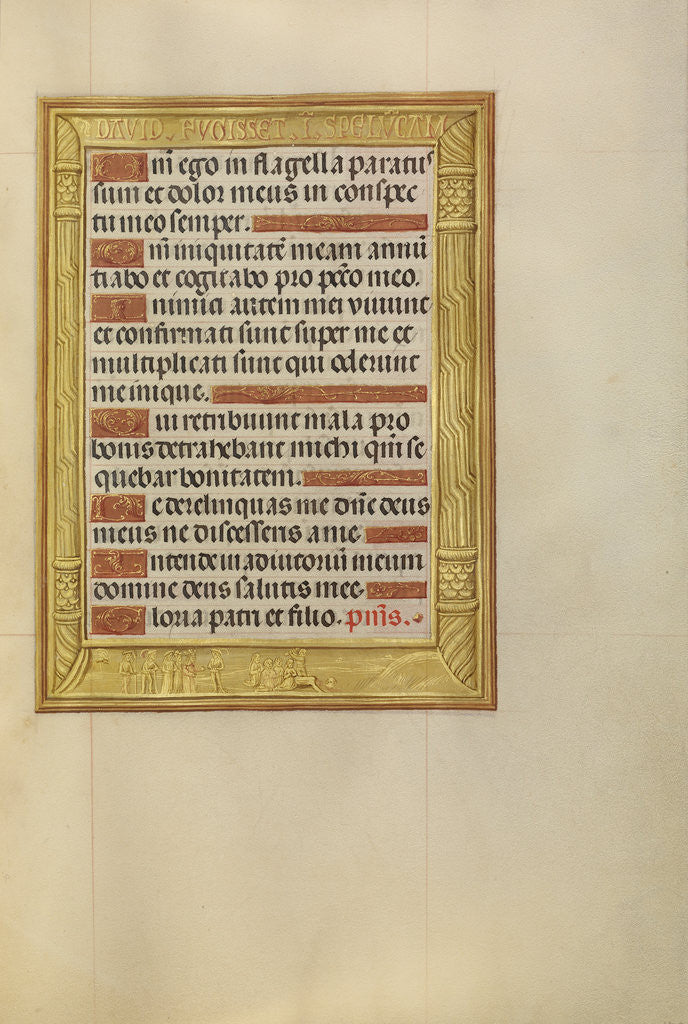 DAVID . FUGISSET . Ĩ . SPELŪCAM
Qm̄ ego in flagella paratus
sum et dolor meus in conspec
tu meo semper.
Qm̄ iniquitatē meam annū
tiabo et cogitabo pro pc̄c̄o meo.
Inimici autem mei viuunt
et confirmati sunt super me et
multiplicati sunt qui oderunt
me inique.
Qui retribuunt mala pro
bonis detrahebant michi qm̄ se
quebar bonitatem.
Ne derelinquas me dn̄e deus
meus ne discesseris a me
Intende in adiutoriū meum
domine deus salutis mee
Gloria patri et filio. pm̄s.